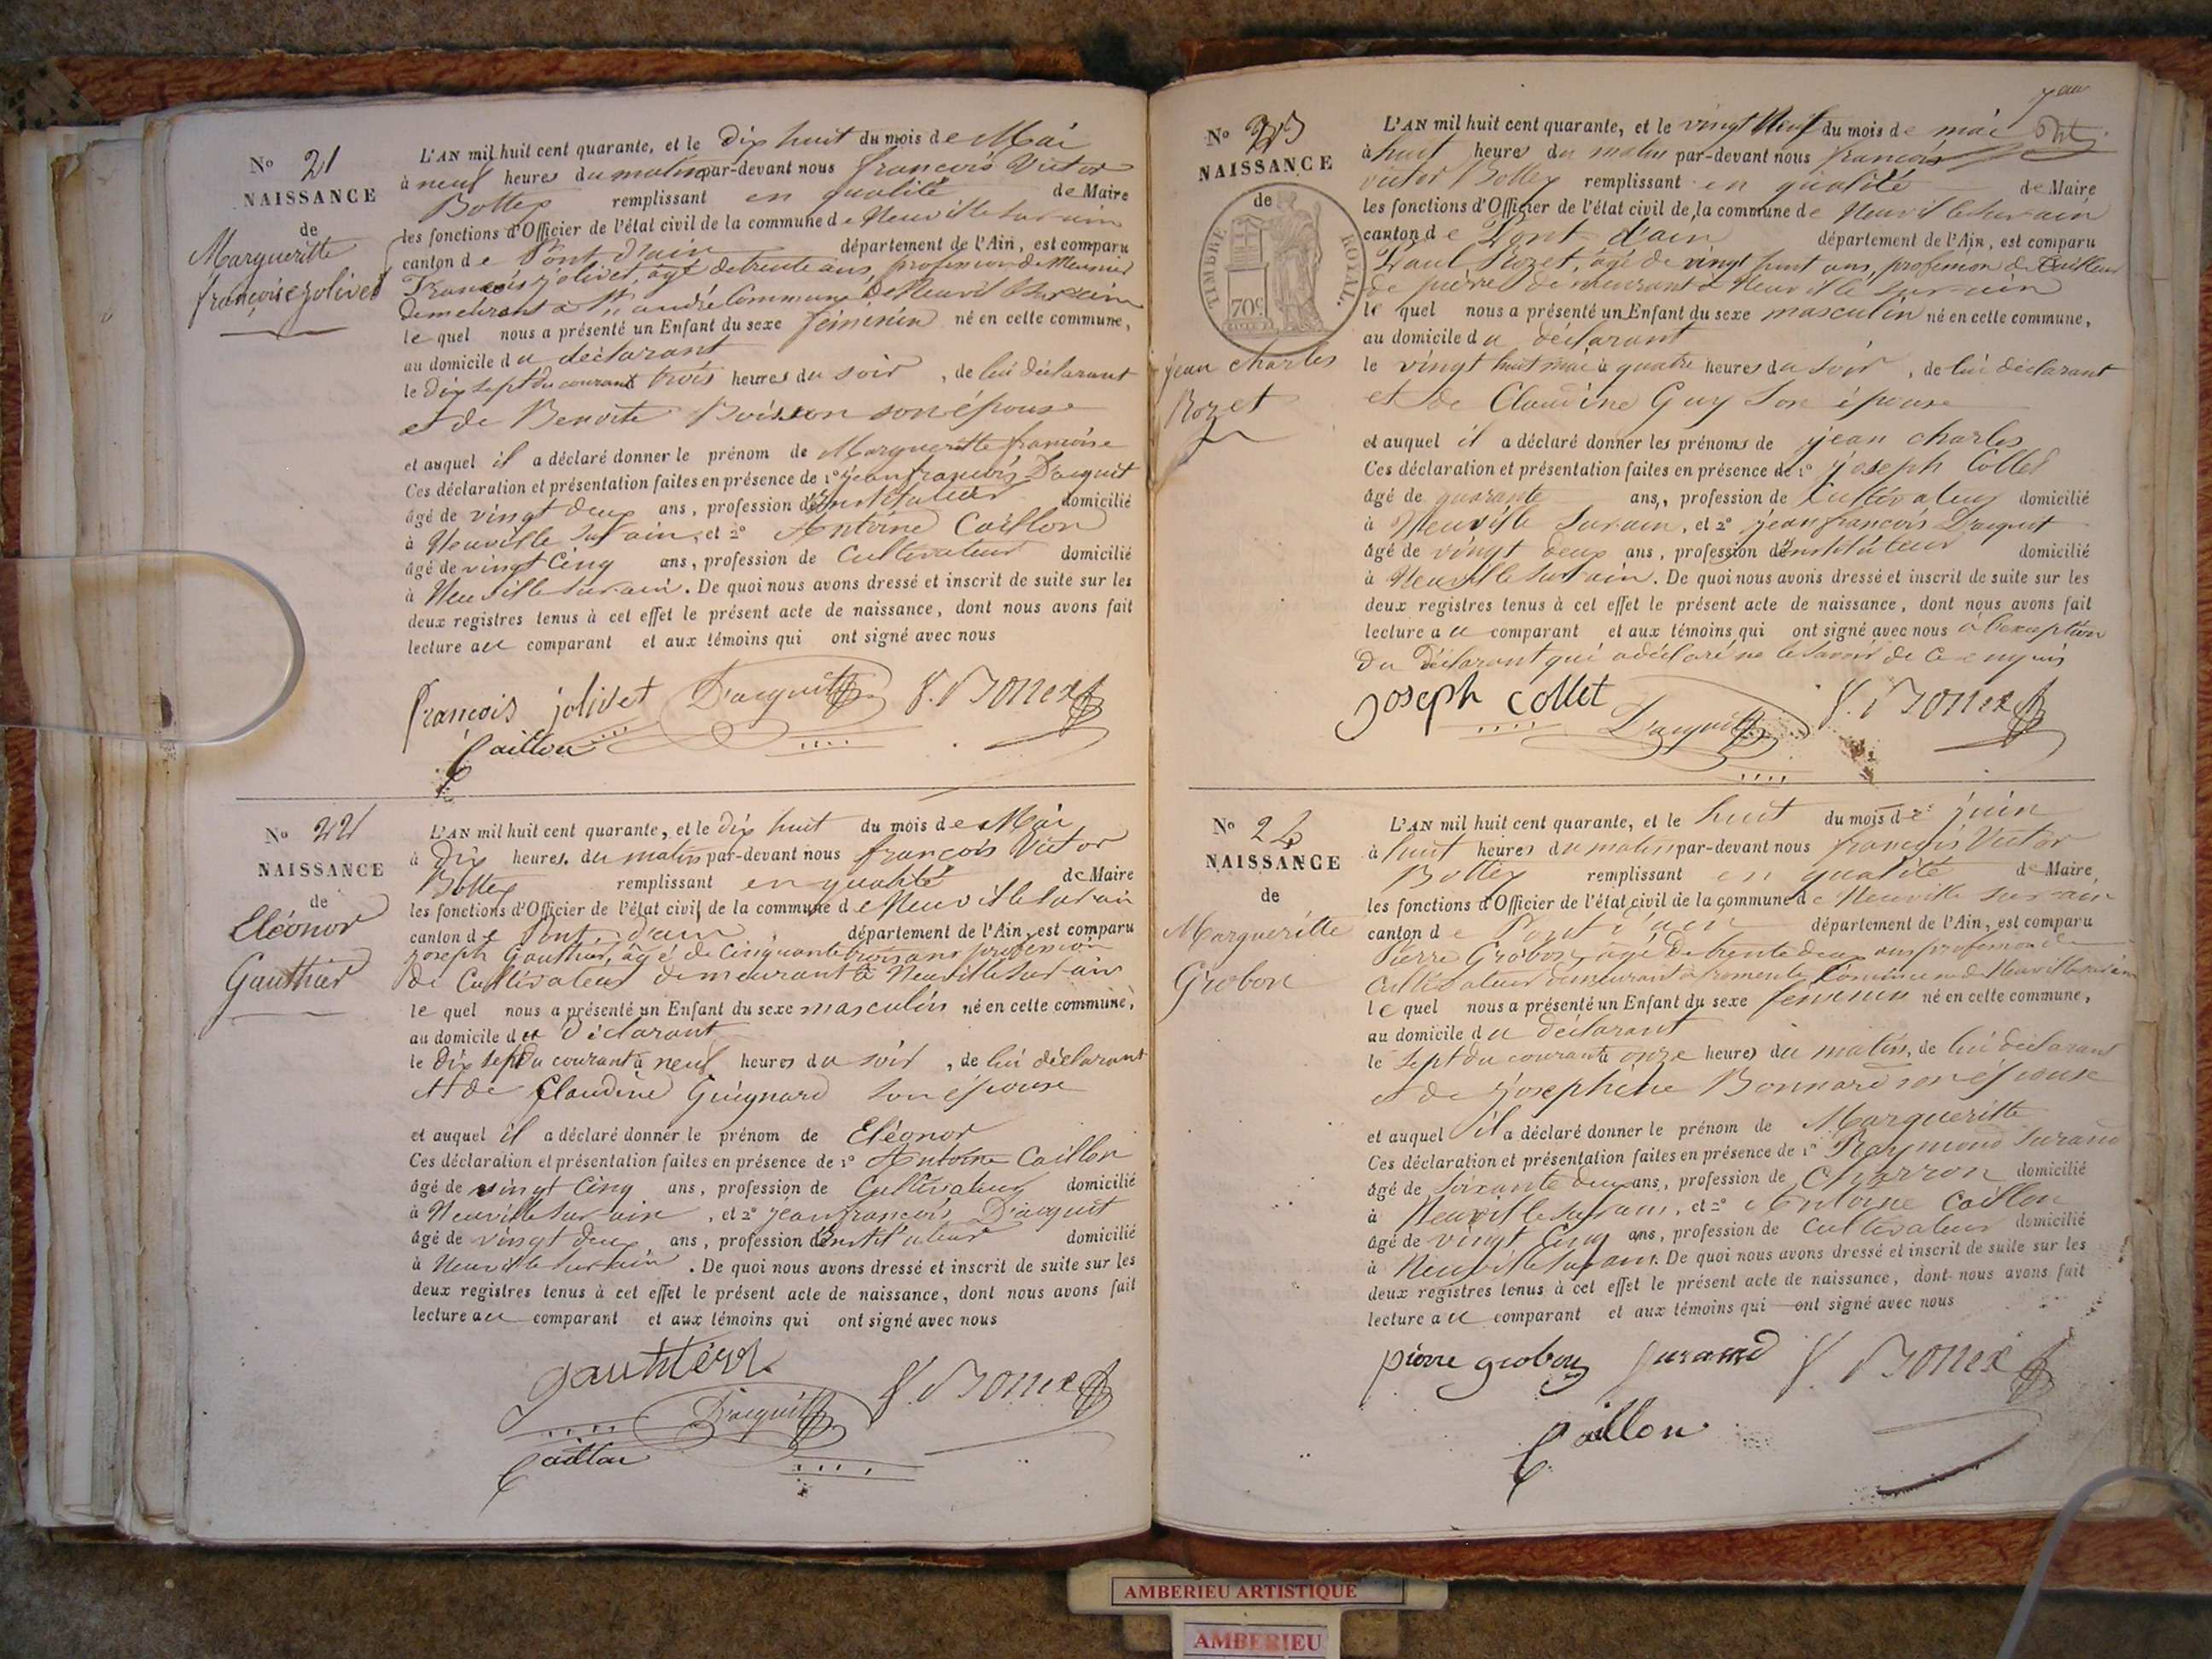 N° 21
NAISSANCE
de
Margueritte
françoise jolivet
L'AN mil huit cent quarante, et le Dix huit du mois de Mai
à neuf heures du matin par-devant nous françois Victor
Bottex remplissant en qualité de Maire
les fonctions d'Officier de l'état civil de la commune de Neuville sur ain
canton de Pont d'ain département de l'Ain, est comparu
François jolivet, agé de trente ans, profession de Meunier
demeurant à St andré Commune de Neuville sur ain
le quel nous a présenté un Enfant du sexe féminin né en cette commune,
au domicile du déclarant
le Dix sept du courant à trois heures du soir, de lui déclarant
et de Benoite Boisson son épouse
et auquel il a déclaré donner le prénom de Margueritte françoise
Ces déclaration et présentation faites en présence de 1° jean françois Dacquit
âgé de vingt deux ans, profession d'Instituteur domicilié
à Neuville sur ain, et 2° Antoine Caillon
âgé de vingt Cinq ans, profession de Cultivateur domicilié
à Neuville sur ain. De quoi nous avons dressé et inscrit de suite sur les
deux registres tenus à cet effet le présent acte de naissance, dont nous avons fait
lecture au comparant et aux témoins qui ont signé avec nous
françois jolivet Dacquit V. Bottex
Caillon
N° 22
NAISSANCE
de
Eléonor
Gauthier
L'AN mil huit cent quarante, et le dix huit du mois de Mai
à Dix heures du matin par-devant nous françois Victor
Bottex remplissant en qualité de Maire
les fonctions d'Officier de l'état civil de la commune de Neuville sur ain
canton de Pont d'ain département de l'Ain, est comparu
joseph Gauthier, âgé de Cinquante trois ans profession
de Cultivateur demeurant à Neuville sur ain
le quel nous a présenté un Enfant du sexe masculin né en cette commune,
au domicile du Déclarant
le Dix sept du courant à neuf heures du soir, de lui déclarant
et de Claudine Guignard son épouse
et auquel il a déclaré donner le prénom de Eléonor
Ces déclaration et présentation faites en présence de 1° Antoine Caillon
âgé de vingt Cinq ans, profession de Cultivateur domicilié
à Neuville sur ain, et 2° jean françois Dacquit
âgé de vingt deux ans, profession d'Instituteur domicilié
à Neuville sur ain. De quoi nous avons dressé et inscrit de suite sur les
deux registres tenus à cet effet le présent acte de naissance, dont nous avons fait
lecture au comparant et aux témoins qui ont signé avec nous
gauthier V. Bottex
Dacquit
Caillon
7eme
N° 23
NAISSANCE
de
TIMBRE ROYAL.
70c.
jean charles
Rozet
L'AN mil huit cent quarante, et le vingt Neuf du mois de mai
à huit heures du matin par-devant nous françois
victor Bottex remplissant en qualité de Maire
les fonctions d'Officier de l'état civil de la commune de Neuville sur ain
canton de Pont d'ain département de l'Ain, est comparu
Paul Rozet, âgé de vingt huit ans, profession de Tailleur
de pierre demeurant à Neuville sur ain
le quel nous a présenté un Enfant du sexe masculin né en cette commune,
au domicile du déclarant
le vingt huit mai à quatre heures du soir, de lui déclarant
et de Claudine Guy son épouse
et auquel il a déclaré donner les prénoms de jean charles
Ces déclaration et présentation faites en présence de 1° joseph Collet
âgé de quarante ans, profession de Cultivateur domicilié
à Neuville sur ain, et 2° jean françois Dacquit
âgé de vingt deux ans, profession d'Instituteur domicilié
à Neuville sur ain. De quoi nous avons dressé et inscrit de suite sur les
deux registres tenus à cet effet le présent acte de naissance, dont nous avons fait
lecture au comparant et aux témoins qui ont signé avec nous à l'exception
du déclarant qui a déclaré ne le savoir de ce enquis
joseph collet Dacquit V. Bottex
N° 24
NAISSANCE
de
Margueritte
Grobon
L'AN mil huit cent quarante, et le huit du mois de juin
à huit heures du matin par-devant nous françois Victor
Bottex remplissant en qualité de Maire
les fonctions d'Officier de l'état civil de la commune de Neuville sur ain
canton de Pont d'ain département de l'Ain, est comparu
Pierre Grobon, agé de trente deux ans profession de
Cultivateur demeurant à fromente Commune de Neuville sur ain
le quel nous a présenté un Enfant du sexe féminin né en cette commune,
au domicile du déclarant
le sept du courant à onze heures du matin, de lui déclarant
et de josephine Bonnard son épouse
et auquel il a déclaré donner le prénom de Margueritte
Ces déclaration et présentation faites en présence de 1° Raymond Jurand
âgé de soixante deux ans, profession de Charron domicilié
à Neuville sur ain, et 2° Antoine Caillon
âgé de vingt Cinq ans, profession de Cultivateur domicilié
à Neuville sur ain. De quoi nous avons dressé et inscrit de suite sur les
deux registres tenus à cet effet le présent acte de naissance, dont nous avons fait
lecture au comparant et aux témoins qui ont signé avec nous
pierre grobon jurand V. Bottex
Caillon
AMBERIEU ARTISTIQUE
AMBERIEU